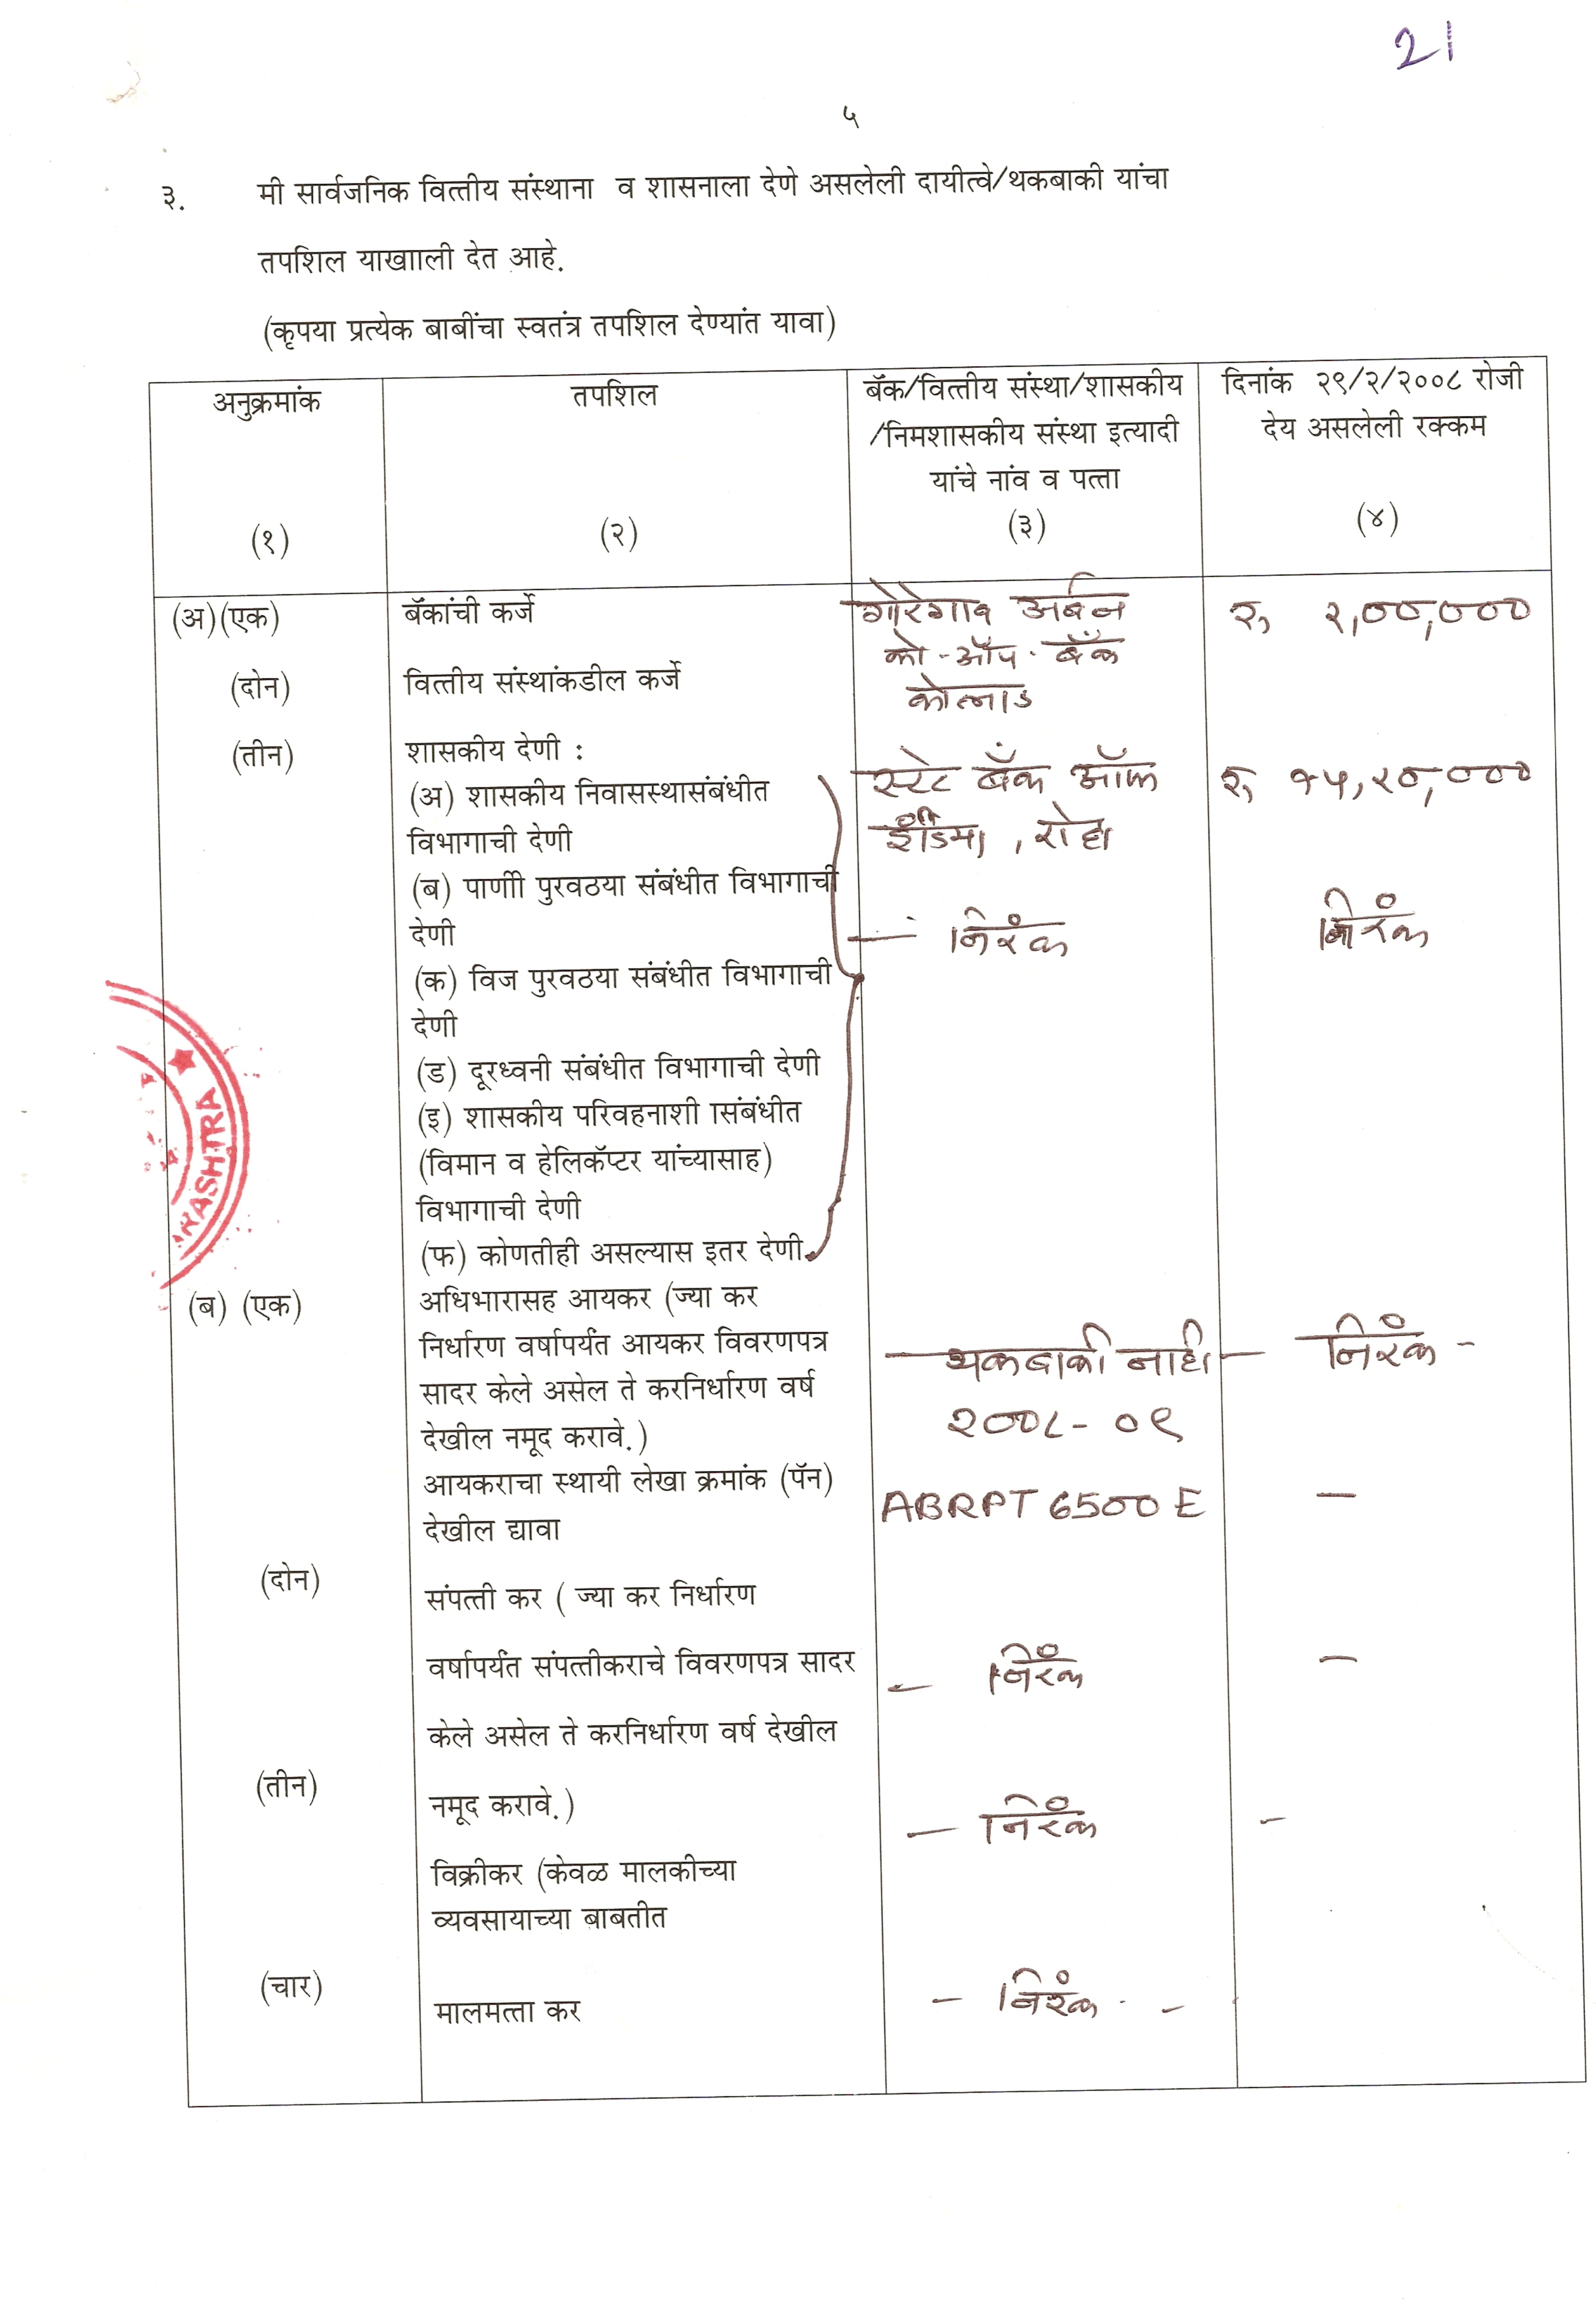 21
५
३. मी सार्वजनिक वित्तीय संस्थाना व शासनाला देणे असलेली दायीत्वे/थकबाकी यांचा
तपशिल याखााली देत आहे.
(कृपया प्रत्येक बाबींचा स्वतंत्र तपशिल देण्यांत यावा)
अनुक्रमांक तपशिल बॅक/वित्तीय संस्था/शासकीय दिनांक २९/२/२००८ रोजी
/निमशासकीय संस्था इत्यादी देय असलेली रक्कम
यांचे नांव व पत्ता
(१) (२) (३) (४)
(अ)(एक) बॅकांची कर्जे गोरेगाव अर्बन रु २,००,०००
को-ऑप. बँक
(दोन) वित्तीय संस्थांकडील कर्जे कोलाड
(तीन) शासकीय देणी :
(अ) शासकीय निवासस्थासंबंधीत स्टेट बँक ऑफ रु १५,२०,०००
विभागाची देणी इंडिया, रोहा
(ब) पाणीी पुरवठया संबंधीत विभागाची
देणी — निरंक निरंक
(क) विज पुरवठया संबंधीत विभागाची
देणी
(ड) दूरध्वनी संबंधीत विभागाची देणी
(इ) शासकीय परिवहनाशी ासंबंधीत
(विमान व हेलिकॅप्टर यांच्यासाह)
विभागाची देणी
(फ) कोणतीही असल्यास इतर देणी.
RASHTRA
(ब) (एक) अधिभारासह आयकर (ज्या कर
निर्धारण वर्षापर्यंत आयकर विवरणपत्र — थकबाकी नाही — निरंक -
सादर केले असेल ते करनिर्धारण वर्ष
देखील नमूद करावे.) २००८-०९
आयकराचा स्थायी लेखा क्रमांक (पॅन) ABRPT 6500 E —
देखील द्यावा
(दोन) संपत्ती कर ( ज्या कर निर्धारण
वर्षापर्यंत संपत्तीकराचे विवरणपत्र सादर — निरंक —
केले असेल ते करनिर्धारण वर्ष देखील
(तीन) नमूद करावे.) — निरंक -
विक्रीकर (केवळ मालकीच्या
व्यवसायाच्या बाबतीत
(चार) मालमत्ता कर - निरंक -